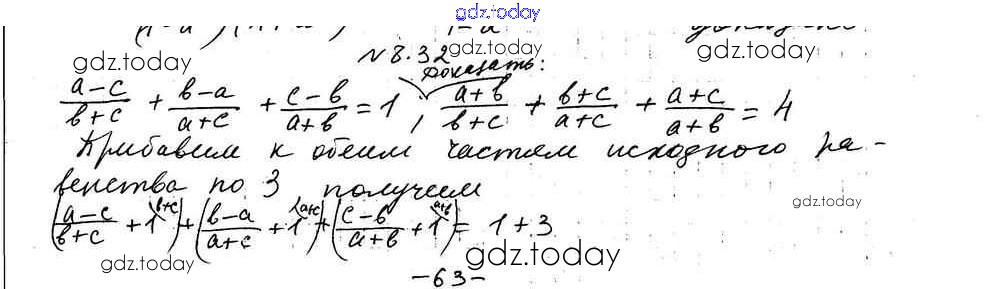 gdz.today
№ 8.32
gdz.today
gdz.today
Доказать:
(a-c)/(b+c) + (b-a)/(a+c) + (c-b)/(a+b) = 1, (a+b)/(b+c) + (b+c)/(a+c) + (a+c)/(a+b) = 4
Прибавим к обеим частям исходного ра-
венства по 3 получим
gdz.today
((a-c)/(b+c) + 1^{\b+c}) + ((b-a)/(a+c) + 1^{\a+c}) + ((c-b)/(a+b) + 1^{\a+b}) = 1+3
gdz.today
gdz.today
-63-